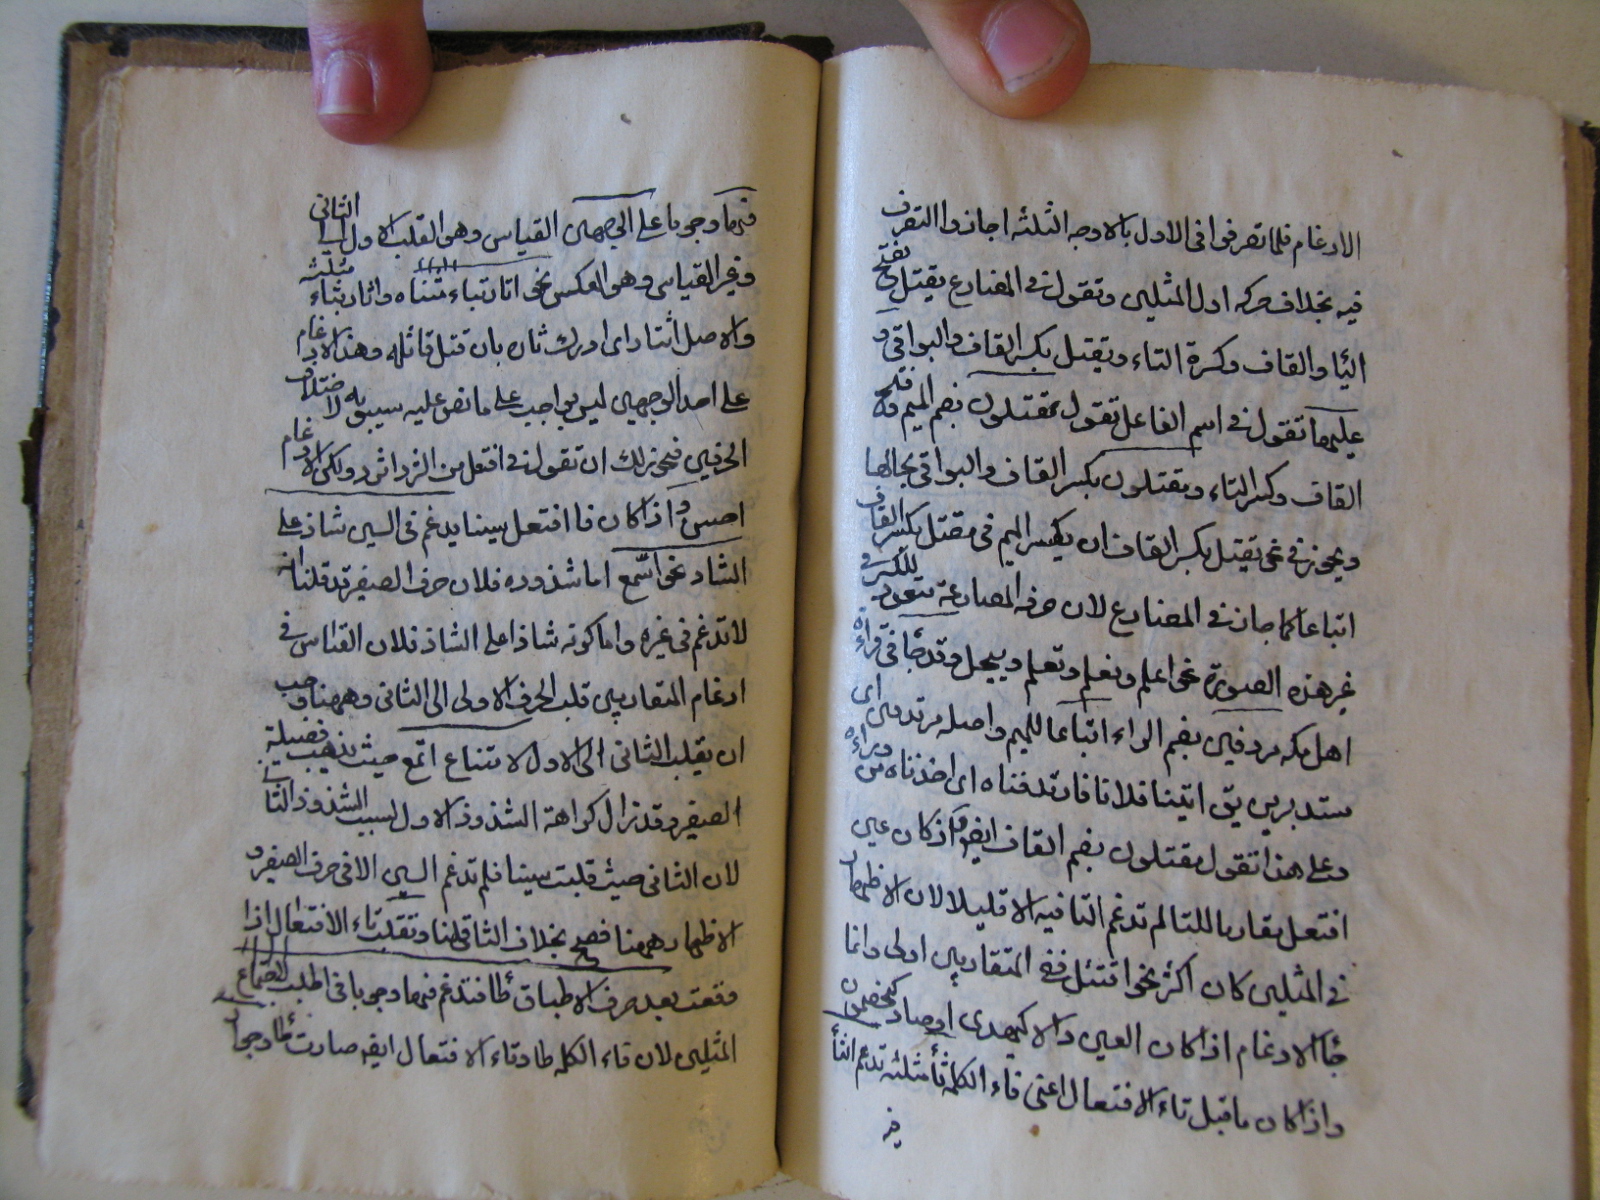 الادغام فلما تصرفوا فى الاول بالاوجه الثلثه اجازوا التصرف
فيه بخلاف حركه اول المثلين وتقول فى المضارع يقتل بفتح
اليا والقاف وكسرة التاء ويقتل بكسر القاف والبواقى و
عليهما تقول فى اسم الفاعل تقول مقتلون بضم الميم وفتح
القاف وكسر التاء ومقتلون بكسر القاف والبواقى بحالها
ويجوز فى نحو يقتل بكسر القاف ان يكسر الميم فى مقتل بكسر القاف
اتباعا كما جاز فى المضارع لان حرف المضارعة متعود للكسر فى
غير هذه الصورة نحو اعلم ونعلم وتعلم وييجل وقد جا فى قراءة
اهل مكه مردفين بضم الراء اتباعا للميم واصله مرتدفين اى
مستدبرين يق اتينا فلانا فارتدفناه اى اخذناه من وراءه
وعلى هذا تقول مقتلون بضم القاف ايضا واذ كان عين
افتعل مقاربا للتا لم تدغم التا فيه الا قليلا لان الاظهار
فى المثلين كان اكثر نحو اقتتل ففى المتقاربين اولى وانما
جاء الادغام اذا كان العين دالا كيهدى او صاد كيخصمون
واذا كان ما قبل تاء الافتعال اعنى فاء الكلمة ثا مثلثه تدغم الثا
فيـ
فيها وجوبا على الوجهين القياس وهو القلب الاول الى الثانى
وغير القياسى وهو العكس نحو اتار بتاء مثناه واثار بثاء مثلثه
والاصل اثتار اى ادرك ثان بان قتل قاتله وهذا الادغام
على احد الوجهين ليس بواجب على ما نص عليه سيبويه لاختلاف
الحرفين فيجوز لك ان تقول فى افتعل من الثرد اثترد ولكن الادغام
احسن واذا كان فا افتعل سينا يدغم فى السين شاذ على
الشاذ نحو اسمع اما شذوده فلان حرف الصفير قد قلنا ان
لا تدغم فى غيره واما كونه شاذا على الشاذ فلان القياس فى
ادغام المتقاربين قلب الحرف الاولى الى الثانى وههنا وجب
ان يقلب الثانى الى الاول لامتناع اتمع حيث يذهب فضيلة
الصفير وقد زال كراهة الشذوذ الاول لسبب الشذوذ الثانى
لان الثانى حيث قلبت سينا فلم تدغم السين الا فى حرف الصفير و
الاظهار ههنا فصيح بخلاف الثا قلنا وتقلب تاء الافتعال اذا
وقعت بعد حرف الاطباق طا فتدغم فيها وجوبا فى اطلب لاجتماع
المثلين لان فاء الكلمه طا وتاء الافتعال ايضا صارت طا وجوبا